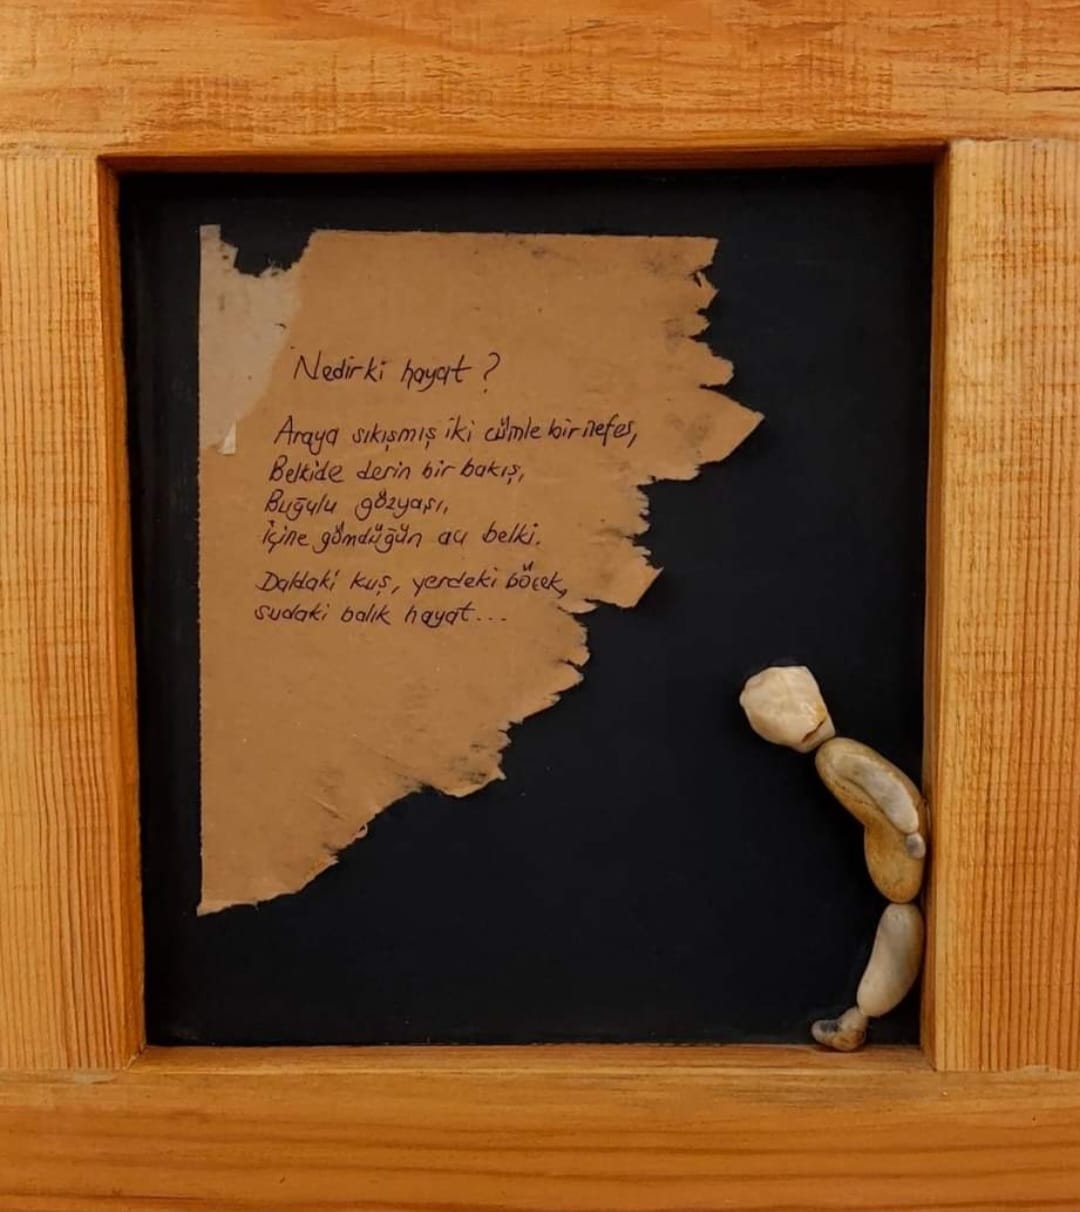 Nedirki hayat ?
Araya sıkışmış iki cümle bir nefes,
Belkide derin bir bakış,
Buğulu gözyaşı,
İçine gömdüğün acı belki.
Daldaki kuş, yerdeki böcek,
sudaki balık hayat...